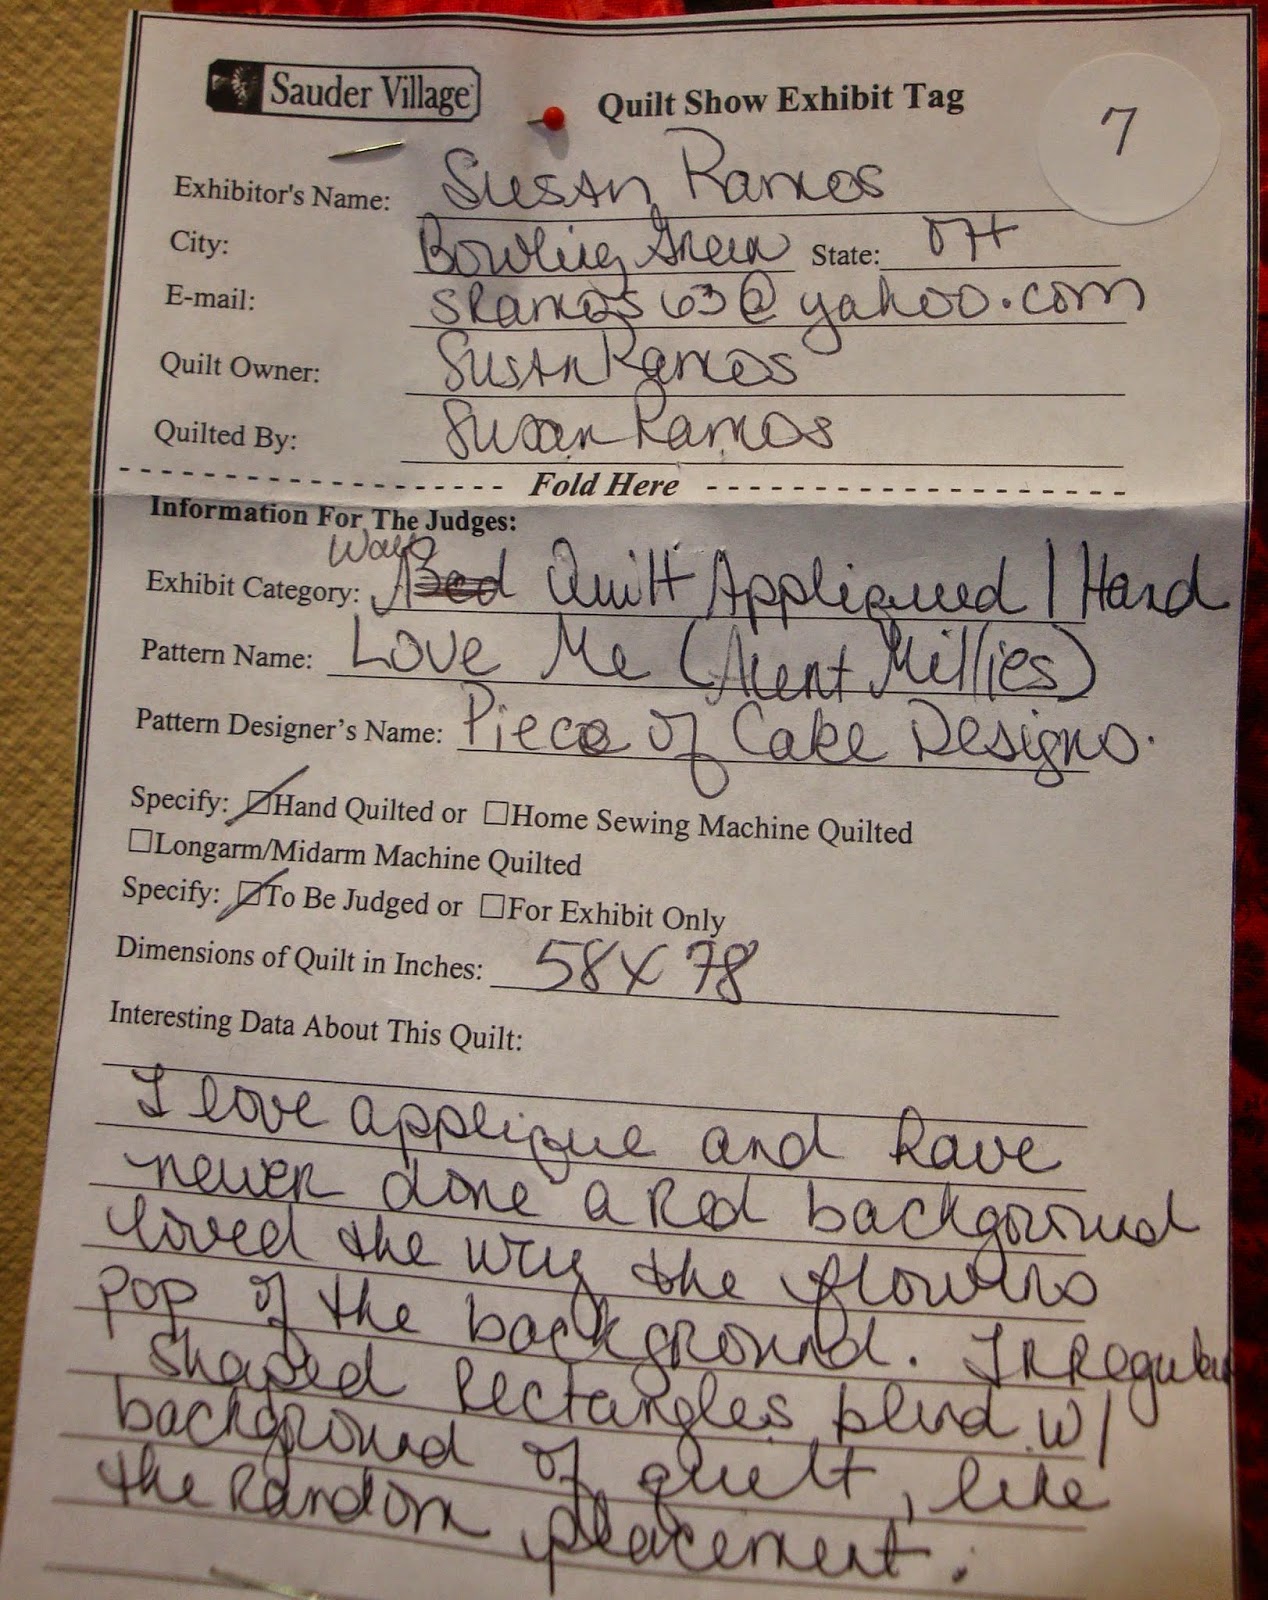 Sauder Village
Quilt Show Exhibit Tag
7
Exhibitor's Name: Susan Ramos
City: Bowling Green State: OH
E-mail: sramos63@yahoo.com
Quilt Owner: Susan Ramos
Quilted By: Susan Ramos
Fold Here
Information For The Judges:
Wall
Exhibit Category: Bed Quilt Appliqued / Hand
Pattern Name: Love Me (Aunt Millies)
Pattern Designer's Name: Piece of Cake Designs.
Specify: Hand Quilted or Home Sewing Machine Quilted
Longarm/Midarm Machine Quilted
Specify: To Be Judged or For Exhibit Only
Dimensions of Quilt in Inches: 58 x 78
Interesting Data About This Quilt:
I love applique and have
never done a red background
loved the way the flowers
pop of the background. Irregular
shaped rectangles blend w/
background of quilt, like
the random placement.